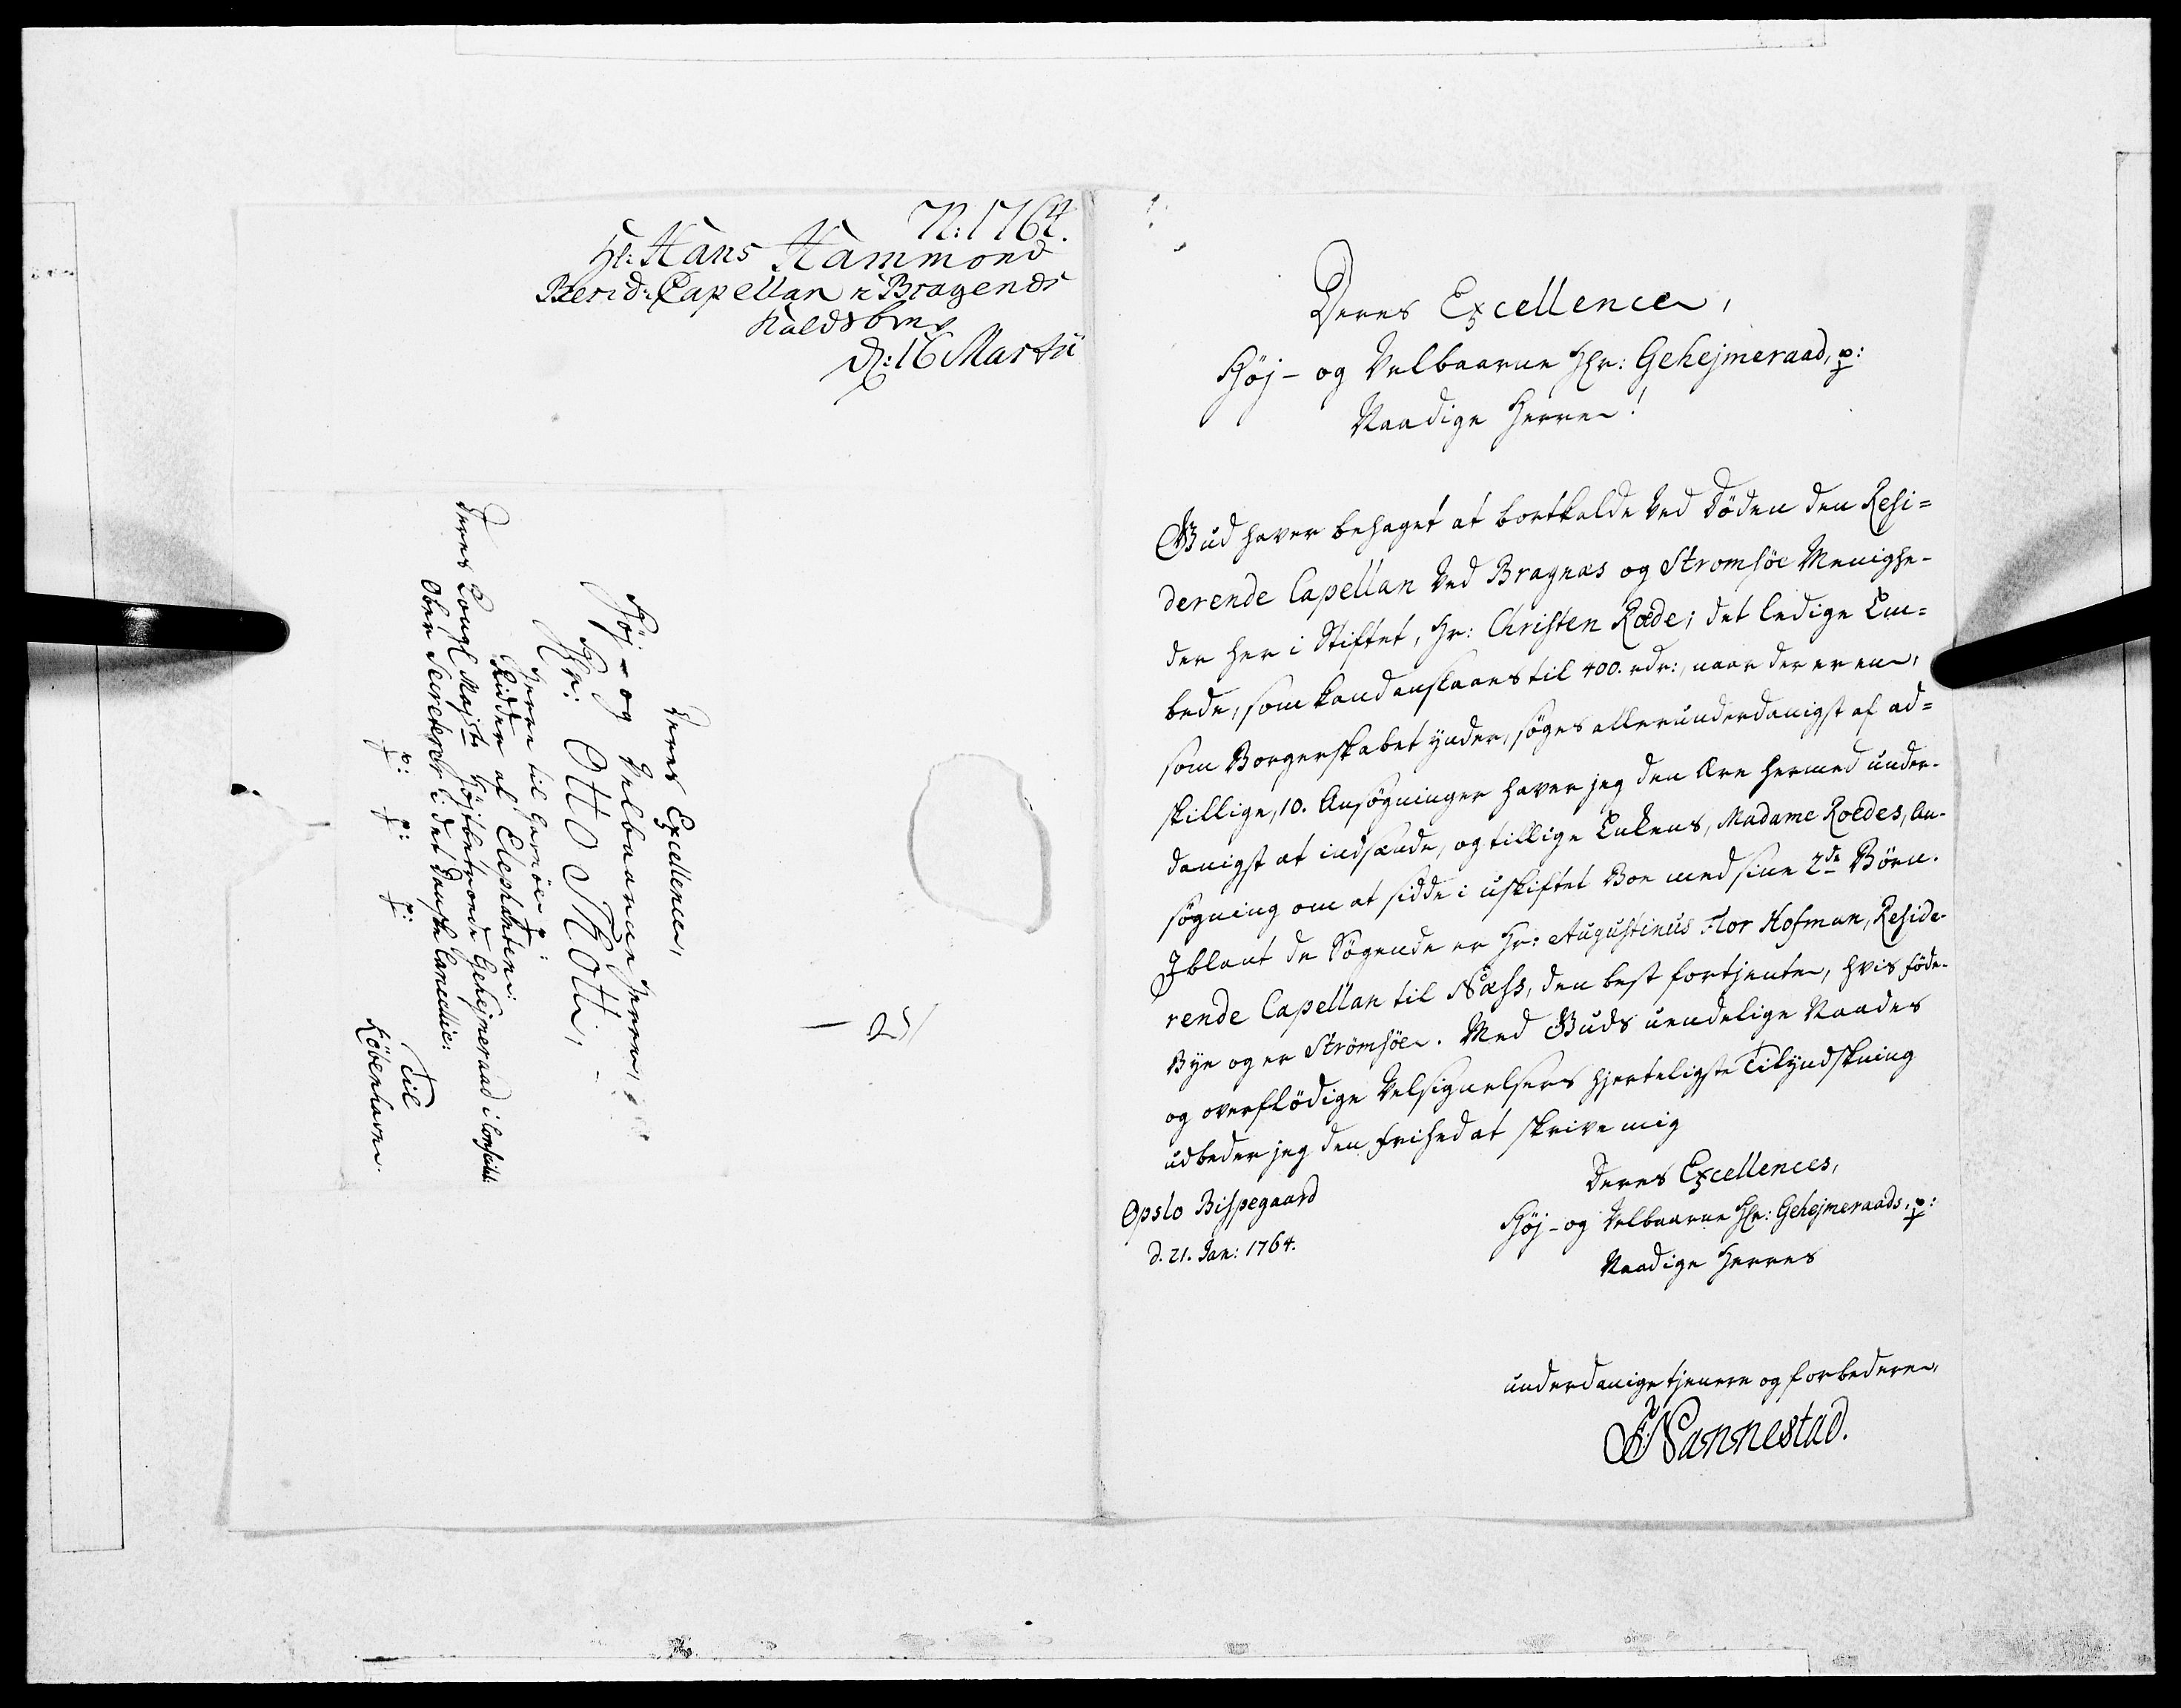 N: 1764.
Hr: Hans Hammond
Resid: Capellan n Bragends
Kaldsbrev
d: 16 Martii
Deres Excellence,
Høj- og Velbaarne Herre,
Hr: Otto Thott,
Herre til Gaunöe p:
Ridder af Elephanten:
Deres Kongl: Majsts højtbetroede Gehejmeraad i Conseilet:
Ober Secreterer i det danske Cancellie:
p: p: p:
Til
Kobenhavn.
Deres Excellence,
Høj- og Velbaarne Hr: Gehejmeraad, p:
Naadige Herre!
Gud haver behaget at bortkalde ved Döden den Resi=
derende Capellan ved Bragnæs og Stromsöe Menighe-
der her i Stiftet, Hr: Christen Röde; det ledige Em=
bede, som kand anslaaes til 400. rdr:, naar der er en,
som Borgerskabet ynder, söges allerunderdanigst af ad=
skillige, 10. Ansøgninger haver jeg den Ære hermed under-
danigst at indsænde, og tillige Enkens, Madame Roedes, An-
søgning om at sidde i uskiftet Boe med sine 2de Börn.
Iblant de Søgende er Hr: Augustinus Flor Hofman, Reside-
rende Capellan til Næss, den best fortjente, hvis føde-
Bye og er Strömsöe. Med Guds uendelige Naades
og overflödige Velsignelsers hjerteligste Tilyndskning
udbeder jeg den frihed at skrive mig
Deres Excellences,
Høj- og Velbaarne Hr: Gehejmeraads, p:
Naadige Herres
Opslo Bispegaard
d. 21. Jan: 1764.
underdanige tjenere og forbedere,
F: Nannestad.